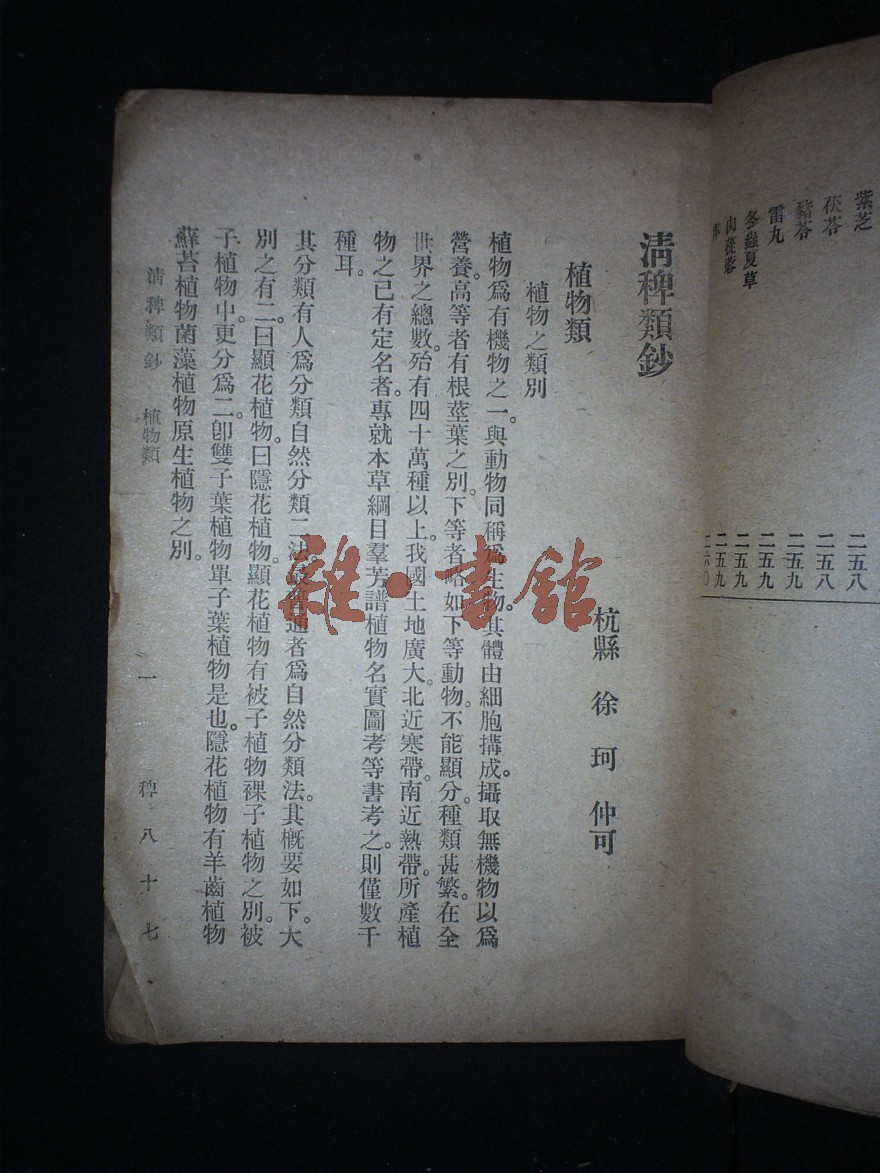 紫芝 二五八
茯苓 二五八
豬苓 二五九
雷丸 二五九
冬蟲夏草 二五九
肉蓯蓉 二五九
二六〇
清稗類鈔
杭縣 徐 珂 仲可
植物類
植物之類別
植物爲有機物之一。與動物同稱爲生物。其體由細胞搆成。攝取無機物以爲
營養。高等者有根莖葉之別。下等者略如下等動物。不能顯分。種類甚繁。在全
世界之總數。殆有四十萬種以上。我國土地廣大。北近寒帶。南近熱帶。所產植
物之已有定名者。專就本草綱目羣芳譜植物名實圖考等書考之。則僅數千
種耳。
其分類有人爲分類自然分類二法。最普通者爲自然分類法。其概要如下。大
別之有二。曰顯花植物。曰隱花植物。顯花植物有被子植物裸子植物之別。被
子植物中。更分爲二。卽雙子葉植物單子葉植物是也。隱花植物有羊齒植物
蘚苔植物菌藻植物原生植物之別。
清稗類鈔 植物類 一 稗 八十七
雜·書館